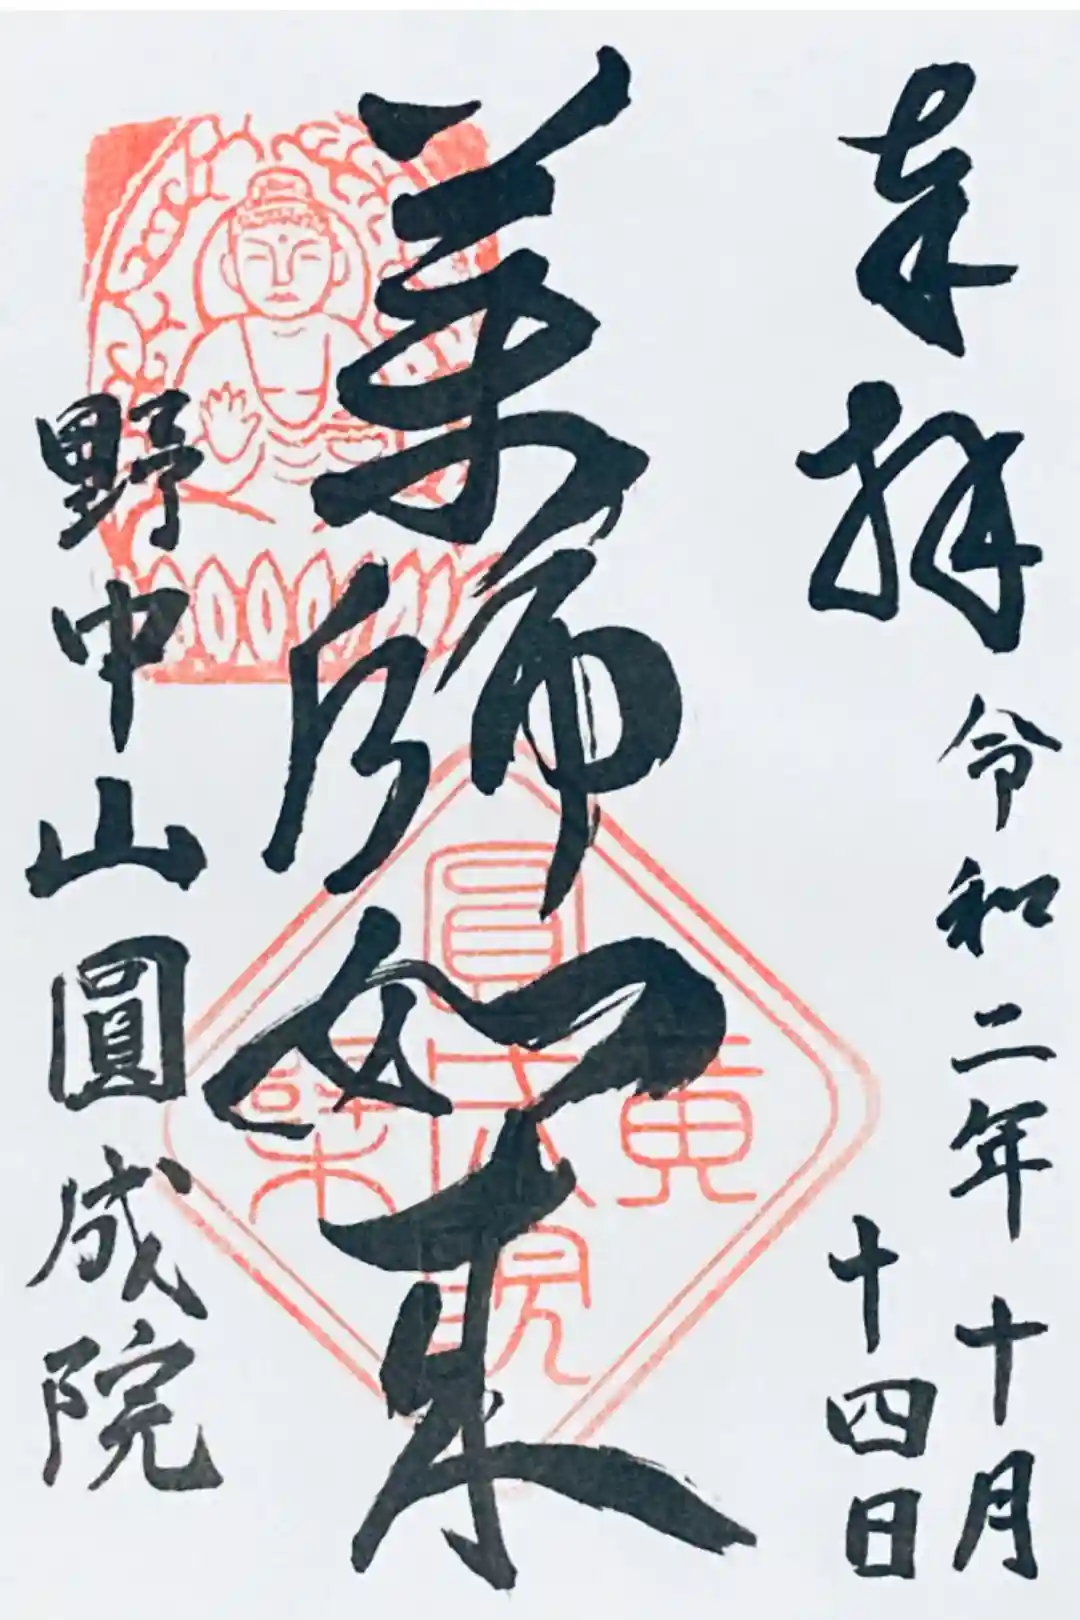 奉拝
令和二年十月
十四日
薬師如来
野中山圓成院
黄
圓成院
檗